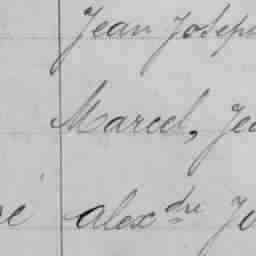 Jean Joseph
Marcel, Je
é alex dre Ju